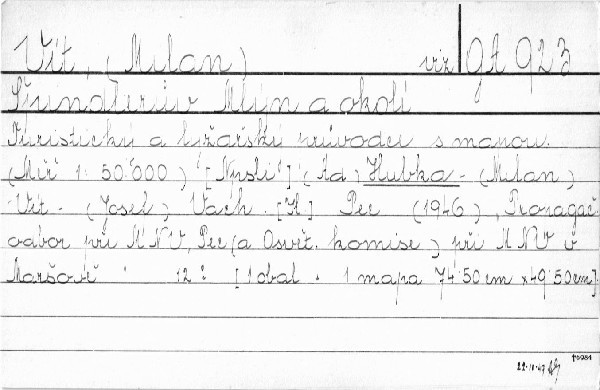 Vít, (Milan) viz gA 923
Špindlerův Mlýn a okolí
Turistický a lyžařský průvodci s mapou.
(Měř 1:50.000) [Npsli] (Ad) Hubka - (Milan)
Vít - (Josef) Vach. [H] Pec (1946), Propagač.
odbor při MNV, Pec (a Osvět. komise) při MNV v
Maršově 12° [1 obal. 1 mapa 74·50 cm x 49·50 cm].
22-11-49